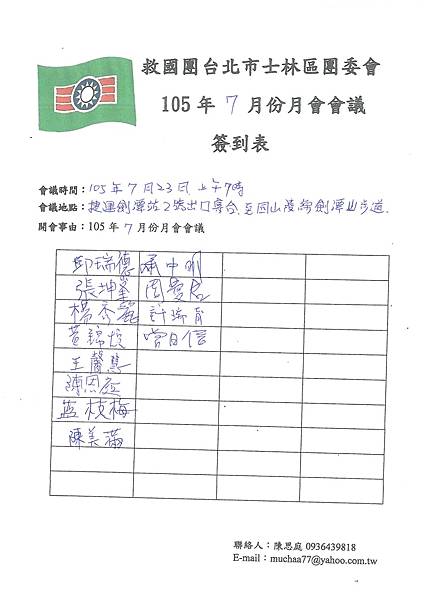 救國團台北市士林區團委會
105 年 7 月份月會會議
簽到表
會議時間：105年7月23日 上午7時
會議地點：捷運劍潭站2號出口 至圓山 劍潭山步道
開會事由：105 年 7 月份月會會議
邱瑞德
張坤峯 周
楊秀麗 許瑞
黃錦
王馨
陳思庭
藍枝梅
陳美滿
聯絡人：陳思庭 0936439818
E-mail：muchaa77@yahoo.com.tw